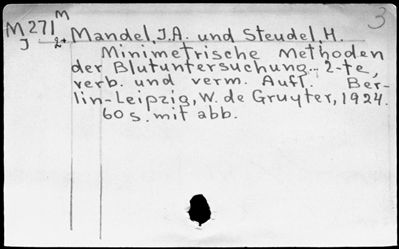 3
M271 M
J 2. Mandel, J.A. und Steudel, H.
Minimetrische Methoden
der Blutuntersuchung. 2-te,
verb. und verm. Aufl. Ber-
lin-Leipzig, W. de Gruyter, 1924.
60 s. mit abb.